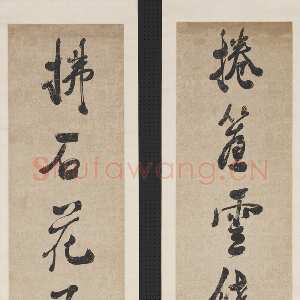 捲簾雲
拂石花
Shufawang.CN